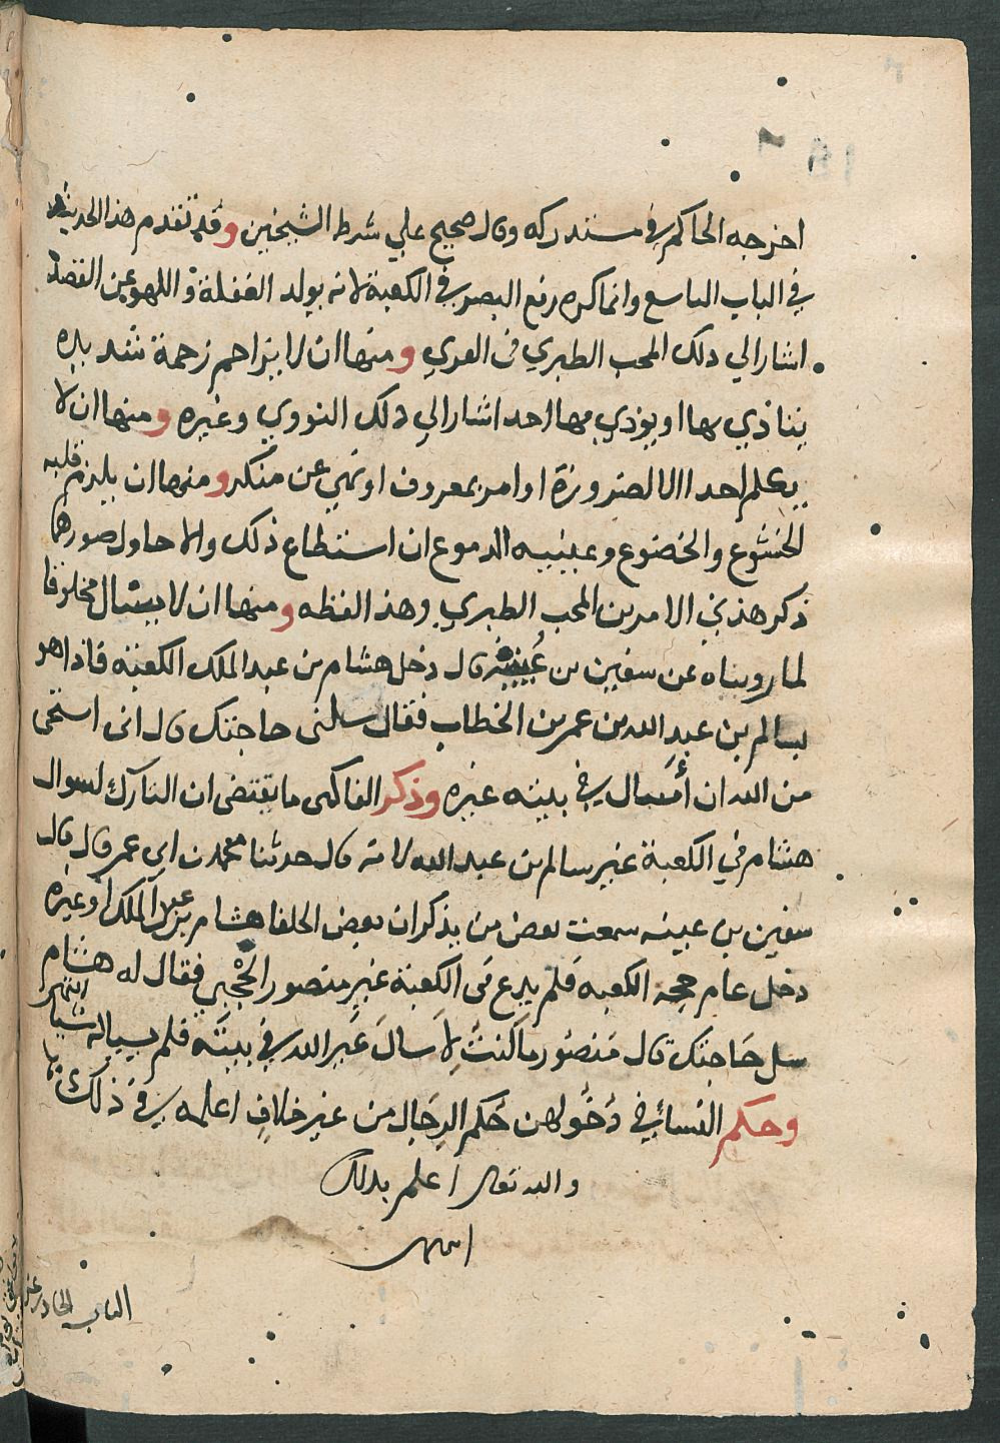 اخرجه الحاكم في مستدركه وقال صحيح علي شرط الشيخين وقد تقدم هذا الحديث
في الباب التاسع وانما كره رفع البصر في الكعبة لانه يولد الغفلة واللهو عن القصد
اشار الي ذلك المحب الطبري في القري ومنها ان لا يزاحم زحمة شديده
يتاذي بها او يوذي بها احد اشار الي ذلك النووي وغيره ومنها ان لا
يكلم احد الا لضرورة او امر بمعروف او نهي عن منكر ومنها ان يلزم قلبه
الخشوع والخضوع وعينيه الدموع ان استطاع ذلك والا حاول صورهما
ذكر هذين الامرين المحب الطبري وهذا لفظه ومنها ان لا يسال مخلوقا
لما رويناه عن سفين بن عُيينه قال دخل هشام بن عبد الملك الكعبه فاذا هو
بسالم بن عبد الله بن عمر بن الخطاب فقال سلني حاجتك قال اني استحي
من الله ان أسال في بيته غيره وذكر الفاكهي ما يقتضي ان التارك لسوال
هشام في الكعبة غير سالم بن عبد الله لانه قال حدثنا محمد بن ابي عمر قال قال
سفين بن عيينه سمعت بعض من يذكر ان بعض الخلفا هشام بن عبد الملك او غيره
دخل عام حجه الكعبه فلم يدع في الكعبة غير منصور الحجبي فقال له هشام
سل حَاجتك قال مَنصُور ما كنتُ لِأَسالَ غَير الله في بيتَه فلم يساله شيا انتهى
وحكم النسا في دُخولهن حَكم الرجَال من غير خلافٍ اعلمه في ذلك
والله تعالى اعلم بذلك
انتهى
الباب الحادي عشر